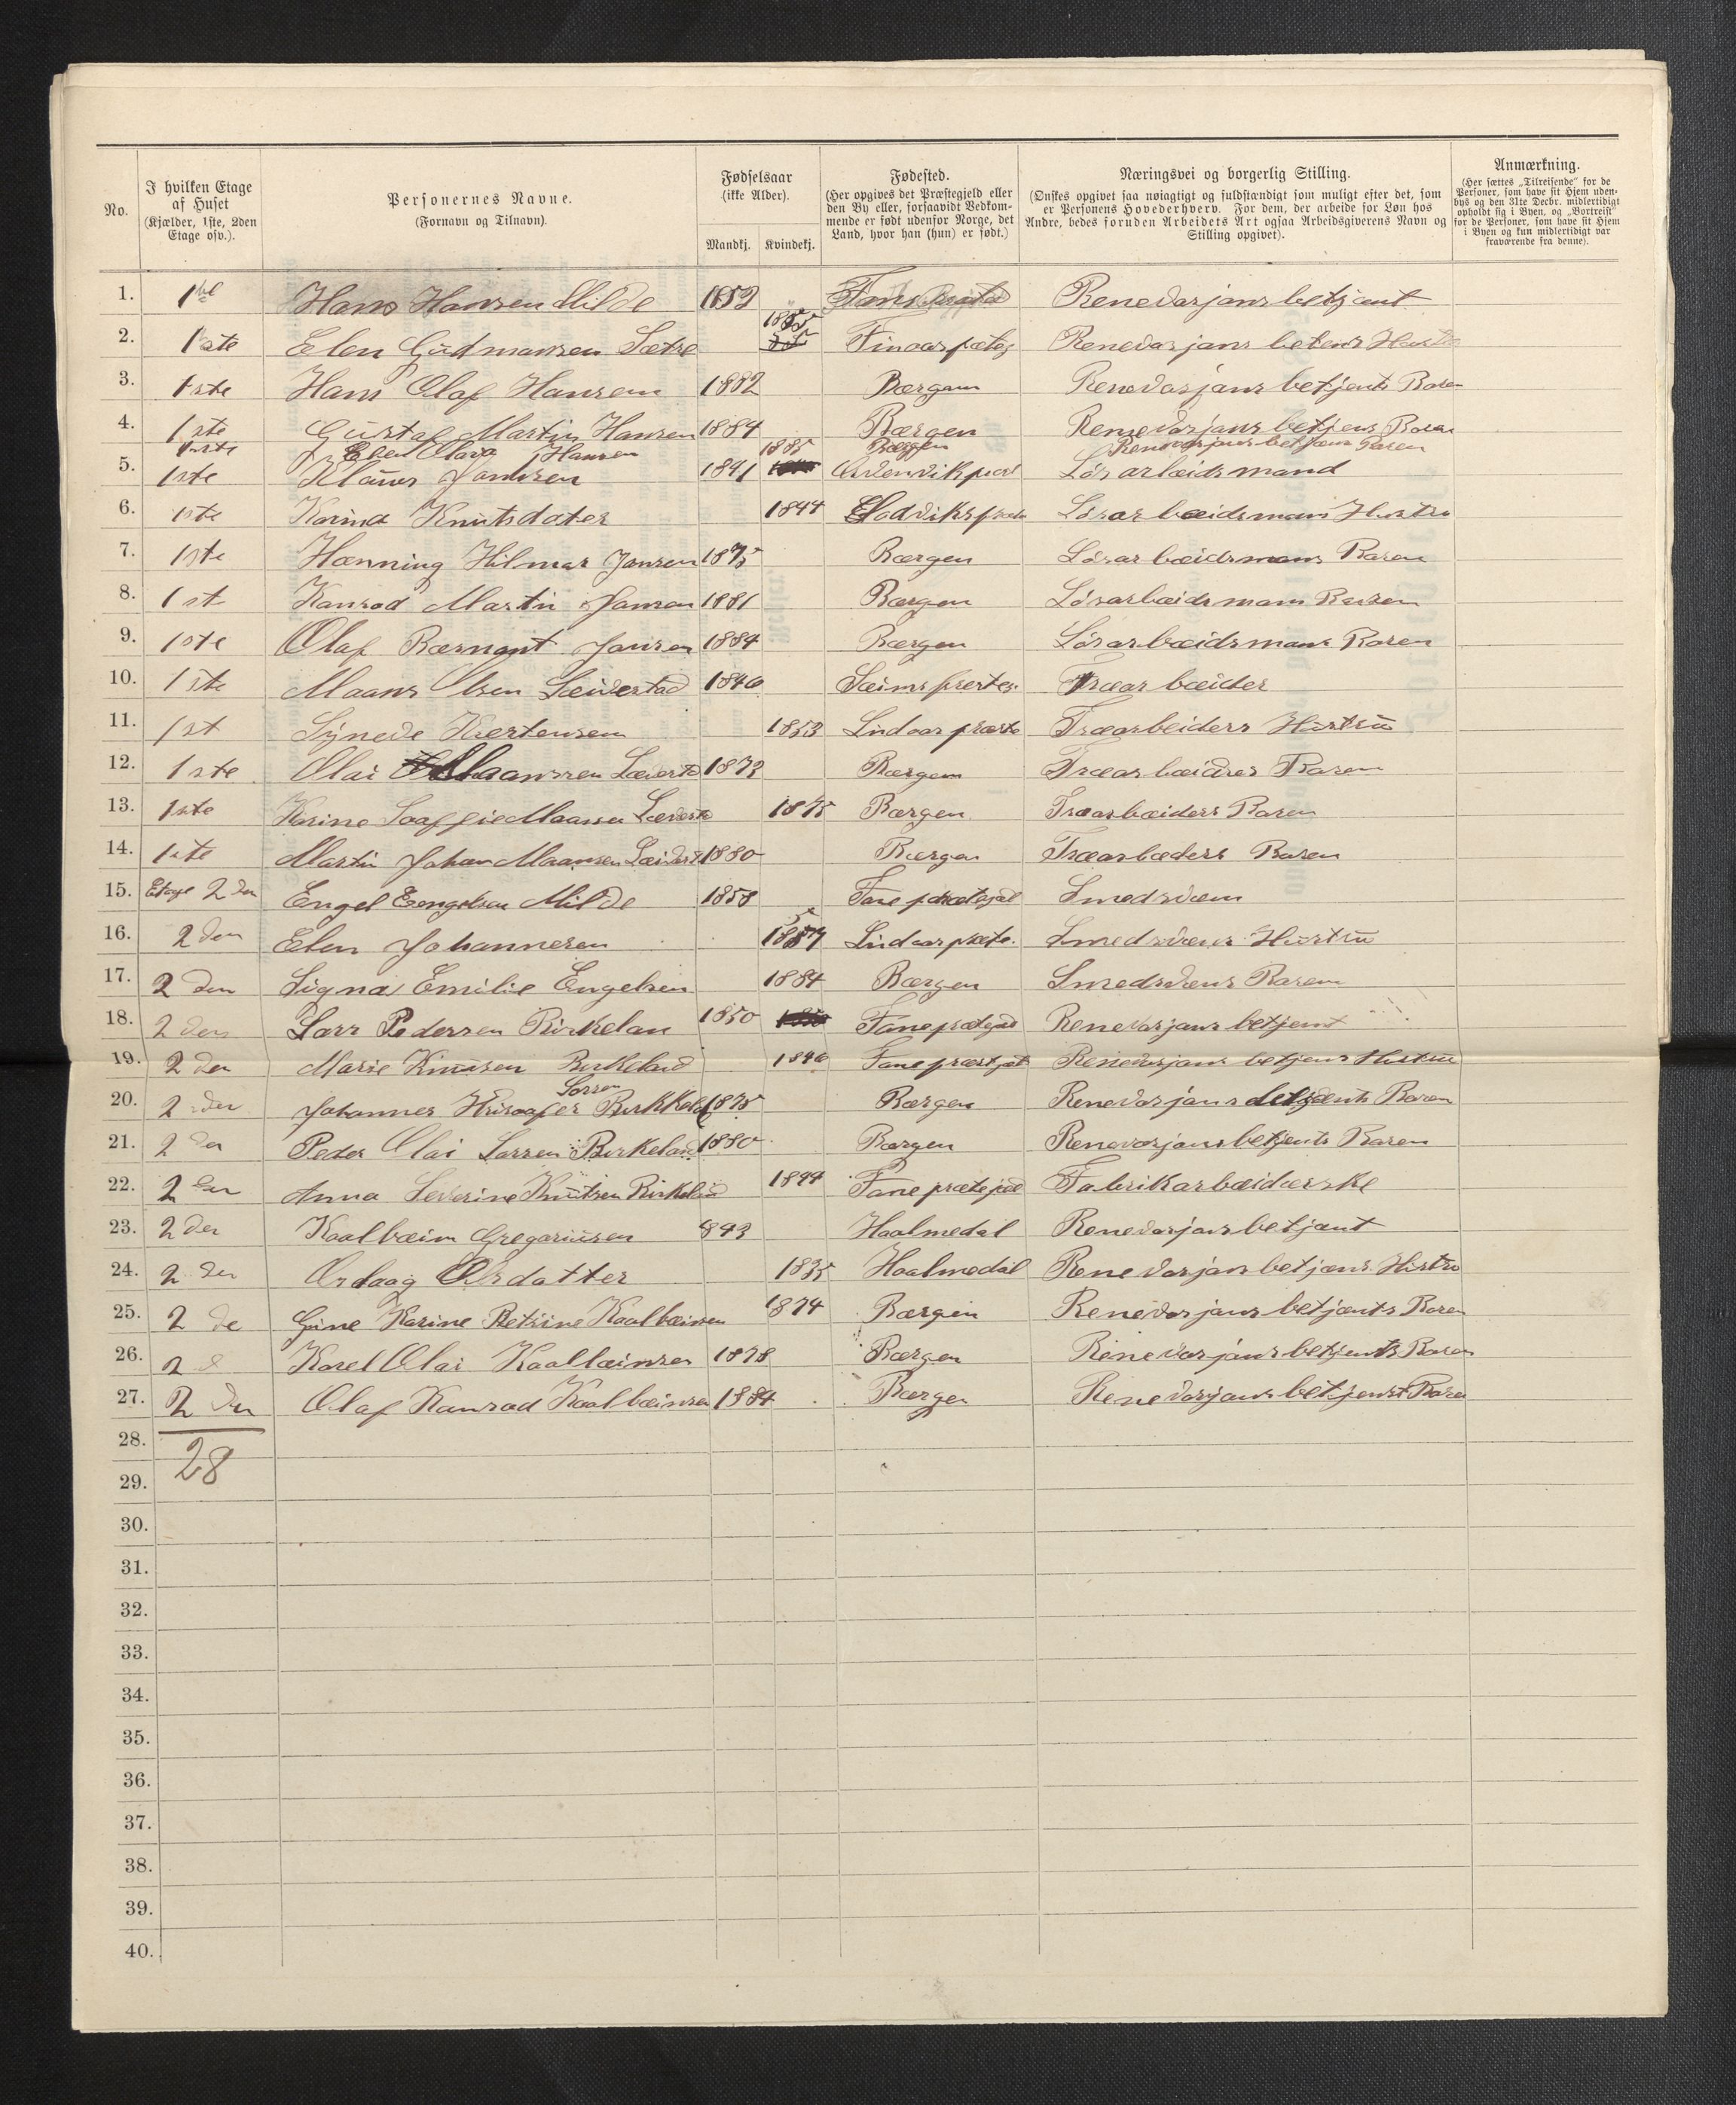 No.
I hvilken Etage
af Huset
(Kjælder, 1ste, 2den
Etage osv.).
Personernes Navne.
(Fornavn og Tilnavn).
Fødselsaar
(ikke Alder).
Mandkj. Kvindekj.
Fødested.
(Her opgives det Præstegjeld eller
den By eller, forsaavidt Vedkom-
mende er født udenfor Norge, det
Land, hvor han (hun) er født.)
Næringsvei og borgerlig Stilling.
(Ønskes opgivet saa nøiagtigt og fuldstændigt som muligt efter det, som
er Personens Hovederhverv. For dem, der arbeide for Løn hos
Andre, bedes foruden Arbeidets Art ogsaa Arbeidsgiverens Navn og
Stilling opgivet).
Anmærkning.
(Her sættes „Tilreisende“ for de
Personer, som have sit Hjem uden-
bys og den 31te Decbr. midlertidigt
opholdt sig i Byen, og „Bortreist“
for de Personer, som have sit Hjem
i Byen og kun midlertidigt var
fraværende fra denne).
1. Hans Hansen Milde 1852 Renevasjans betjænt
2. 1ste Elen Gudmansen Sætre 1855 Renevasjans betens
3. 1ste Hans Olaf Hansen 1882 Bærgen Renevasjans betjents Baren
4. 1ste Gustaf Martin Hansen 1884 Bærgen Renevasjans betjens Baren
1ste Elen Olava Hansen 1885 Bærgen Renevasjans betjens Baren
5. 1ste Klaus Jansen 1841 Løsarbeidsmand
6. 1ste Karina Knutsdater 1844 Løsarbæidsmans Hustro
7. 1ste Hænning Hilmar Jansen 1875 Bærgen Løsarbæidsmans Baren
8. 1st Kanrad Martin Jansen 1881 Bærgen Løsarbæidsmans Barren
9. 1ste Olaf Bærnant Jansen 1884 Bærgen Løsarbæidsmans Baren
10. 1ste Maans Olsen Sæiverstad 1846 Træarbæider
11. 1st Synede Kjertensen 1853 Lindaas præste Træarbeiders Hustru
12. 1ste Olai Maanssen 1873 Bærgen Træarbæidres Baren
13. 1ste Karine Maansen 1875 Bærgen Træarbæiders Baren
14. 1ste Martin Johan Maansen 1880 Bærgen Træarbæders Baren
15. Etage 2den Engel Eengelsen Milde 1858 Fane Smedsven
16. 2den Elen Johannesen Lindaas Hustru
17. 2den Signa Emilie Engelsen 1884 Bærgen Smedsvens Baren
18. 2den Lars Pedersen Birkelan 1850 Renevasjans betjent
19. 2den Marie Knudsen Birkeland 1846 Renevasjans betjens Hustru
Larsen
20. 2den Johannes Birkkeland 1875 Bærgen Renevasjans betjents Baren
21. 2den Peder Olai Larsen Birkeland 1880 Bærgen Renevasjans betjents Baren
22. 2den Anna Severine Knutsen Fabrikarbæiderske
23. 2den Kaalbæin Gregoriusen 843 Haalmedal Renevasjans betjænt
24. 2den 1835 Haalmedal Renevasjans betjæns Hustro
25. 2de Gine Karine Petrine Kaalbæinsen 1874 Bærgen Renevasjans betjænts Baren
26. Karel Olai Kaalbæinsen 1878 Bærgen Renevasjans betjents Baren
27. 2den Olaf Kanrad Kaalbæinsen 1884 Bærgen Renevasjans betjenst Baren
28.
28
29.
30.
31.
32.
33.
34.
35.
36.
37.
38.
39.
40.